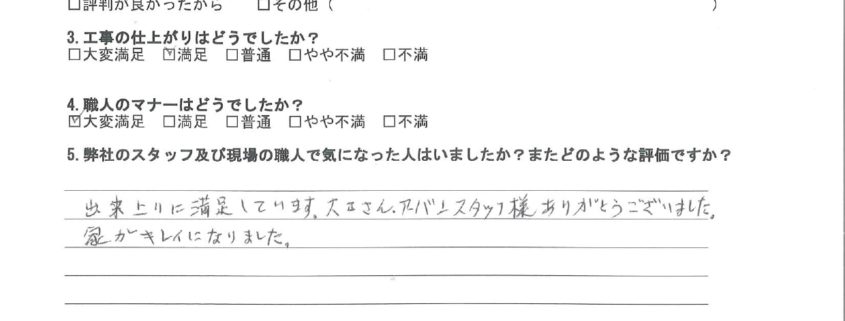 □評判が良かったから □その他（ ）
3. 工事の仕上がりはどうでしたか？
□大変満足 ☑満足 □普通 □やや不満 □不満
4. 職人のマナーはどうでしたか？
☑大変満足 □満足 □普通 □やや不満 □不満
5. 弊社のスタッフ及び現場の職人で気になった人はいましたか？またどのような評価ですか？
出来上りに満足しています。大工さん、スタッフ様ありがとうございました。
家がキレイになりました。